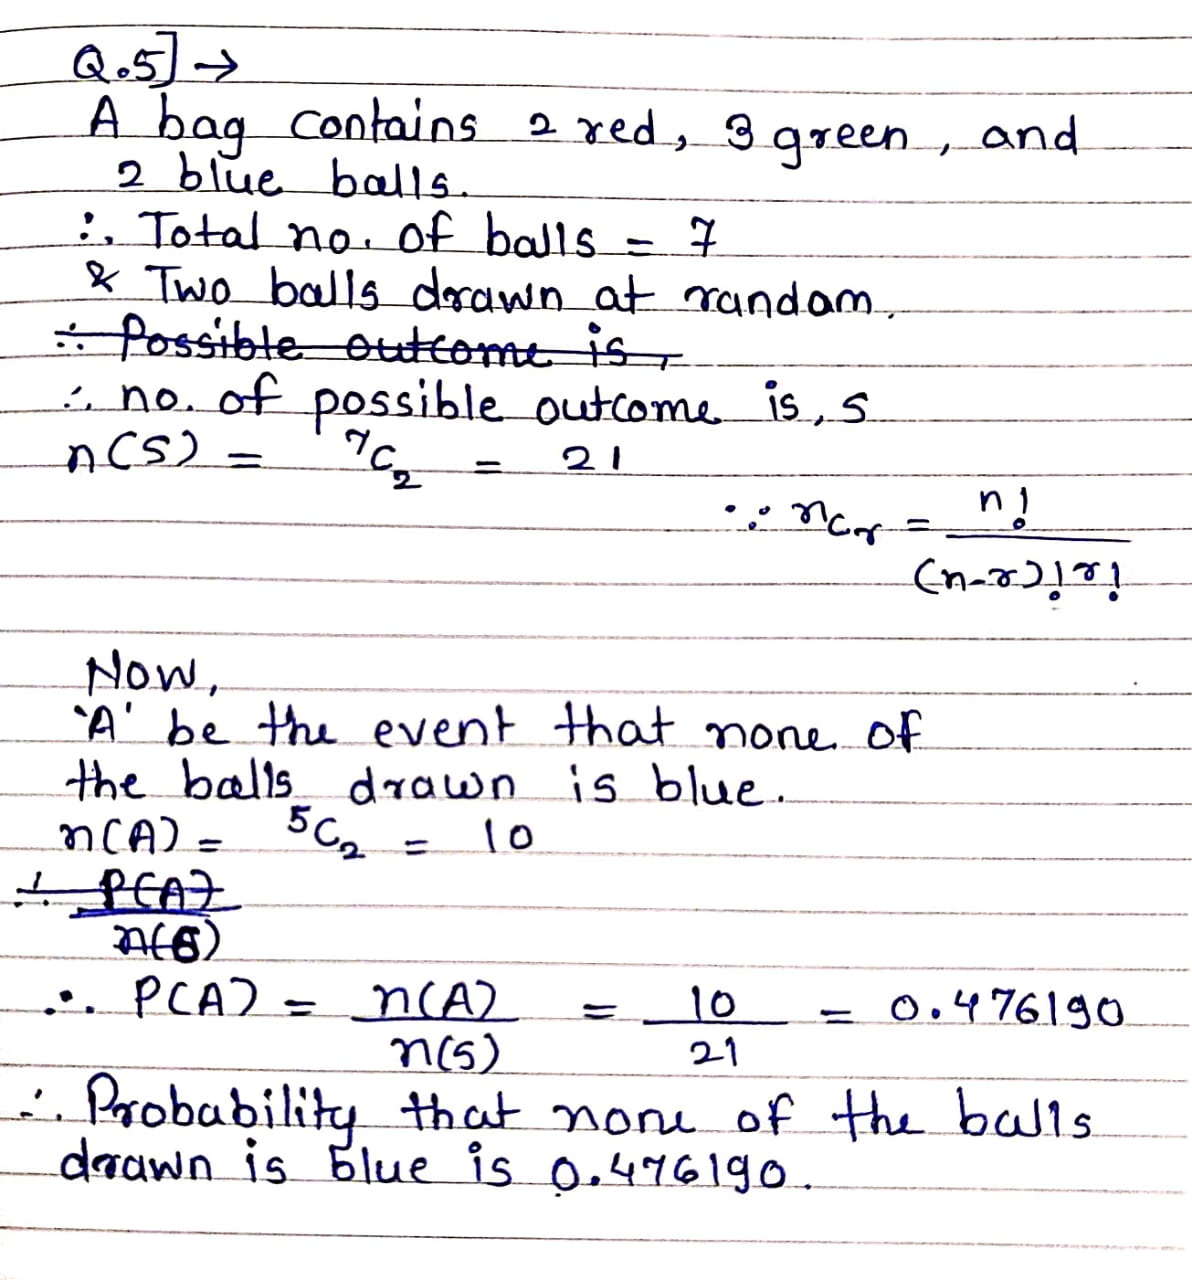 Q.5] →
A bag contains 2 red, 3 green, and
2 blue balls.
∴ Total no. of balls = 7
& Two balls drawn at randam.
∴ Possible outcome is,
∴ no. of possible outcome is, s
n(S) = ⁷C₂ = 21
∵ nCr = n! / (n-r)! r!
Now,
'A' be the event that none of
the balls drawn is blue.
n(A) = ⁵C₂ = 10
∴ P(A)
n(S)
∴ P(A) = n(A) / n(S) = 10 / 21 = 0.476190
∴ Probability that none of the balls
drawn is blue is 0.476190.